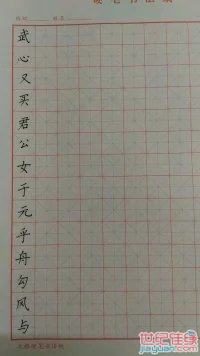 武
心
又
买
君
公
女
于
元
乎
舟
勾
风
与
世纪佳缘
jiayuan.com